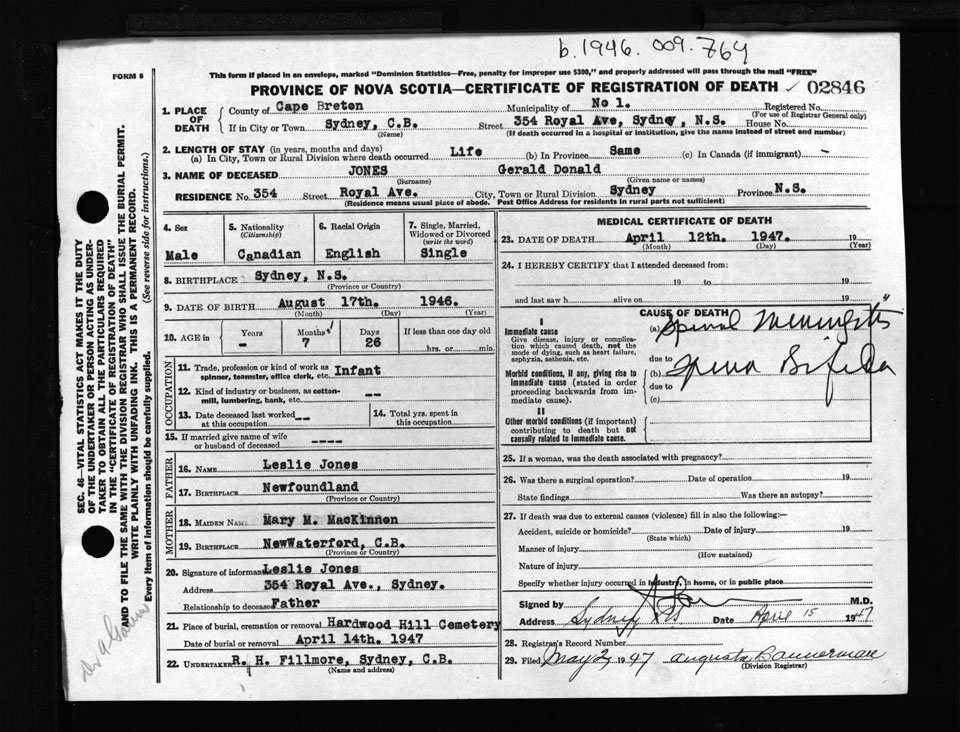 b. 1946. 009. 764
FORM 6
This form if placed in an envelope, marked "Dominion Statistics—Free, penalty for improper use $300," and properly addressed will pass through the mail "FREE"
PROVINCE OF NOVA SCOTIA—CERTIFICATE OF REGISTRATION OF DEATH ✓ 02846
1. PLACE OF DEATH
County of Cape Breton Municipality of No 1. Registered No.
(For use of Registrar General only)
If in City or Town Sydney, C.B. Street 354 Royal Ave, Sydney, N.S. House No.
(Name) (If death occurred in a hospital or institution, give the name instead of street and number)
2. LENGTH OF STAY (in years, months and days)
(a) In City, Town or Rural Division where death occurred Life (b) In Province Same (c) In Canada (if immigrant) -
3. NAME OF DECEASED JONES Gerald Donald
(Surname) (Given name or names)
RESIDENCE No. 354 Street Royal Ave. City, Town or Rural Division Sydney Province N.S.
(Residence means usual place of abode. Post Office Address for residents in rural parts not sufficient)
4. Sex
Male
5. Nationality
(Citizenship)
Canadian
6. Racial Origin
English
7. Single, Married, Widowed or Divorced
(write the word)
Single
8. BIRTHPLACE Sydney, N.S.
(Province or Country)
9. DATE OF BIRTH August 17th. 1946.
(Month) (Day) (Year)
10. AGE in
Years Months Days If less than one day old
- 7 26 hrs. or min.
OCCUPATION
11. Trade, profession or kind of work as Infant
spinner, teamster, office clerk, etc.
12. Kind of industry or business, as cotton- --
mill, lumbering, bank, etc.
13. Date deceased last worked --
at this occupation
14. Total yrs. spent in
this occupation
15. If married give name of wife ----
or husband of deceased
FATHER
16. NAME Leslie Jones
17. BIRTHPLACE Newfoundland
(Province or Country)
MOTHER
18. MAIDEN NAME Mary M. MacKinnon
19. BIRTHPLACE NewWaterford, C.B.
(Province or Country)
20. Signature of informant Leslie Jones
Address 354 Royal Ave., Sydney.
Relationship to deceased Father
21. Place of burial, cremation or removal Hardwood Hill Cemetery
Date of burial or removal April 14th. 1947
22. UNDERTAKER R. H. Fillmore, Sydney, C.B.
(Name and address)
MEDICAL CERTIFICATE OF DEATH
23. DATE OF DEATH April 12th. 1947. 19
(Month) (Day) (Year)
24. I HEREBY CERTIFY that I attended deceased from:
19 to 19
and last saw h alive on 19
CAUSE OF DEATH
I
Immediate cause
Give disease, injury or complication which caused death, not the mode of dying, such as heart failure, asphyxia, asthenia, etc.
(a) Spinal Meningitis
due to
Morbid conditions, if any, giving rise to immediate cause (stated in order proceeding backwards from immediate cause).
(b) Spina Bifida
due to
(c)
II
Other morbid conditions (if important) contributing to death but not causally related to immediate cause.
25. If a woman, was the death associated with pregnancy?
26. Was there a surgical operation? Date of operation 19
State findings Was there an autopsy?
27. If death was due to external causes (violence) fill in also the following:—
Accident, suicide or homicide? Date of injury 19
(State which)
Manner of injury
(How sustained)
Nature of injury
Specify whether injury occurred in industry, in home, or in public place
Signed by M.D.
Address Sydney NS Date April 15 1947
28. Registrar's Record Number
29. Filed May 2 1947 Augusta Bannerman
(Division Registrar)
SEC. 46—VITAL STATISTICS ACT MAKES IT THE DUTY
OF THE UNDERTAKER OR PERSON ACTING AS UNDER-
TAKER TO OBTAIN ALL THE PARTICULARS REQUIRED
IN THE "CERTIFICATE OF REGISTRATION OF DEATH"
AND TO FILE THE SAME WITH THE DIVISION REGISTRAR WHO SHALL ISSUE THE BURIAL PERMIT.
WRITE PLAINLY WITH UNFADING INK. THIS IS A PERMANENT RECORD.
Every item of information should be carefully supplied. (See reverse side for instructions.)